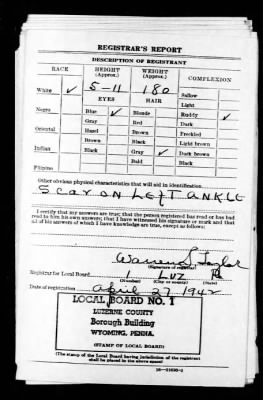 REGISTRAR'S REPORT
DESCRIPTION OF REGISTRANT
RACE HEIGHT (Approx.) WEIGHT (Approx.) COMPLEXION
White ✓ 5-11 180 Sallow
EYES HAIR Light
Negro Blue ✓ Blonde Ruddy ✓
Gray Red Dark
Oriental Hazel Brown Freckled
Brown Black Light brown
Indian Black Gray ✓ Dark brown
Bald Black
Filipino
Other obvious physical characteristics that will aid in identification
SCAR ON LEFT ANKLE
I certify that my answers are true; that the person registered has read or has had
read to him his own answers; that I have witnessed his signature or mark and that
all of his answers of which I have knowledge are true, except as follows:
Warren S. Taylor
(Signature of registrar)
Registrar for Local Board 1 LUZ Pa
(Number) (City or county) (State)
Date of registration April 27, 1942
LOCAL BOARD NO. 1
LUZERNE COUNTY
Borough Building
WYOMING, PENNA.
(STAMP OF LOCAL BOARD)
(The stamp of the Local Board having jurisdiction of the registrant
shall be placed in the above space)